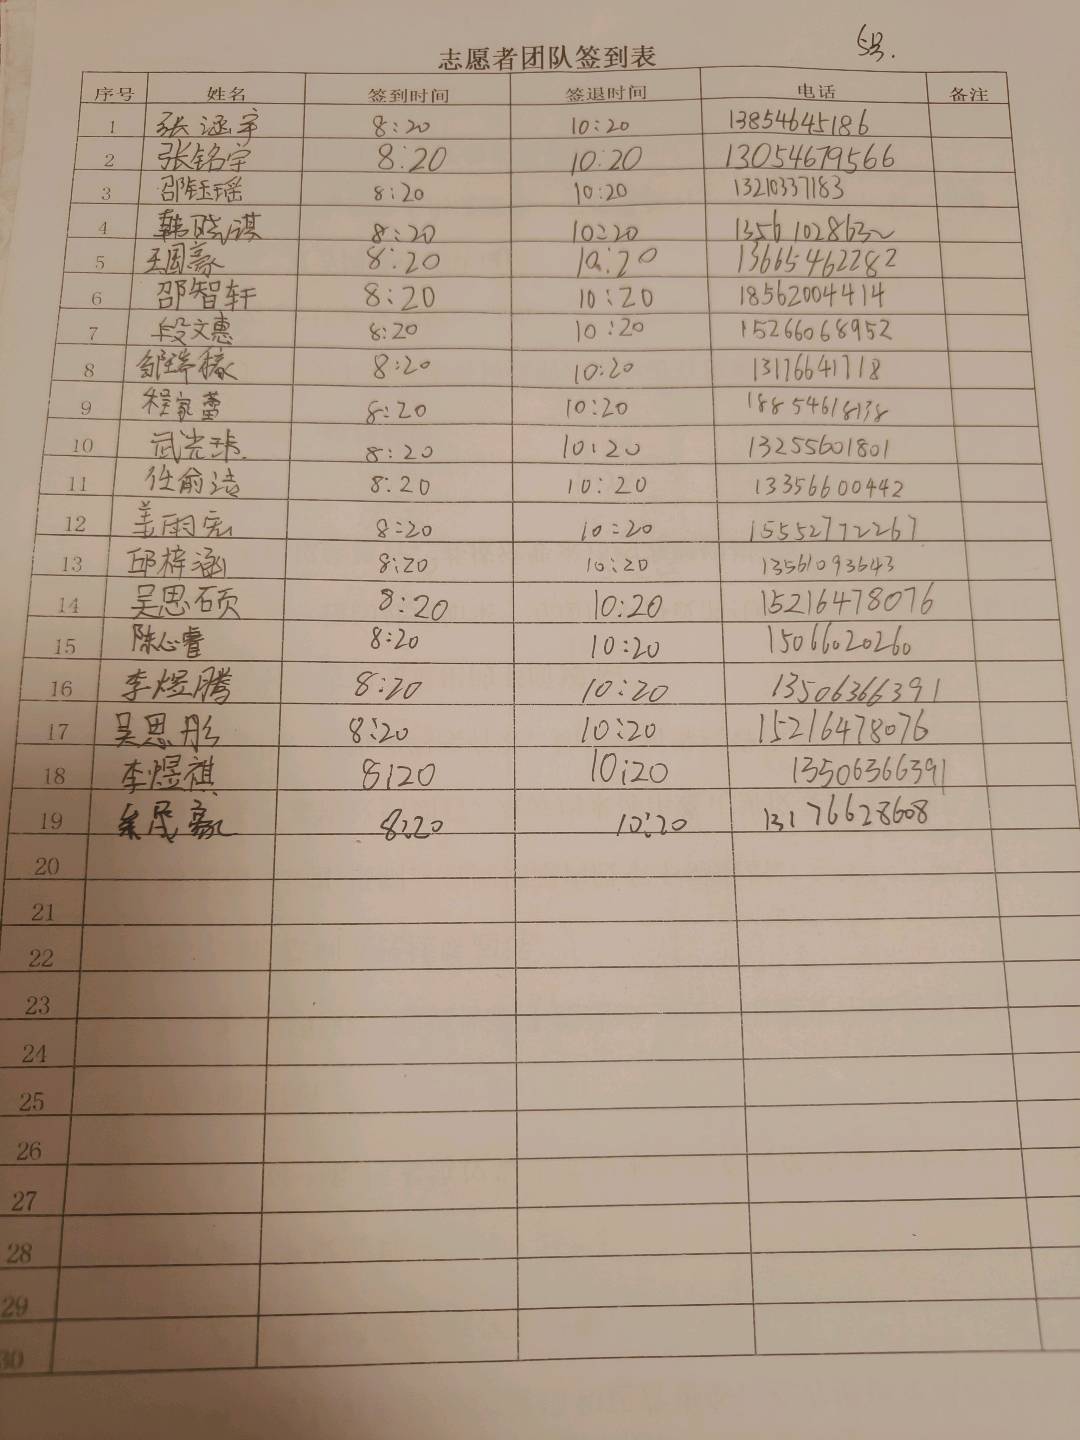 5号.
志愿者团队签到表
序号 姓名 签到时间 签退时间 电话 备注
1 张涵宇 8:20 10:20 13854645186
2 张铭宇 8:20 10:20 13054679566
3 邵钰瑶 8:20 10:20 13210337183
4 韩晓谋 8:20 10:20
5 王周豪 8:20 10:20 13665462282
6 邵智轩 8:20 10:20 18562004414
7 段文惠 8:20 10:20 15266068952
8 8:20 10:20 13176641718
9 程家蕾 8:20 10:20 18854618138
10 8:20 10:20 13255601801
11 任俞洁 8:20 10:20 13356600442
12 姜雨宏 8:20 10:20 15552772267
13 邱梓涵 8:20 10:20 13561093643
14 吴思硕 8:20 10:20 15216478076
15 陈心睿 8:20 10:20 15066020260
16 李煜腾 8:20 10:20 13506366391
17 吴思彤 8:20 10:20 15216478076
18 李煜祺 8:20 10:20 13506366391
19 8:20 10:20 13176628608
20
21
22
23
24
25
26
27
28
29
30